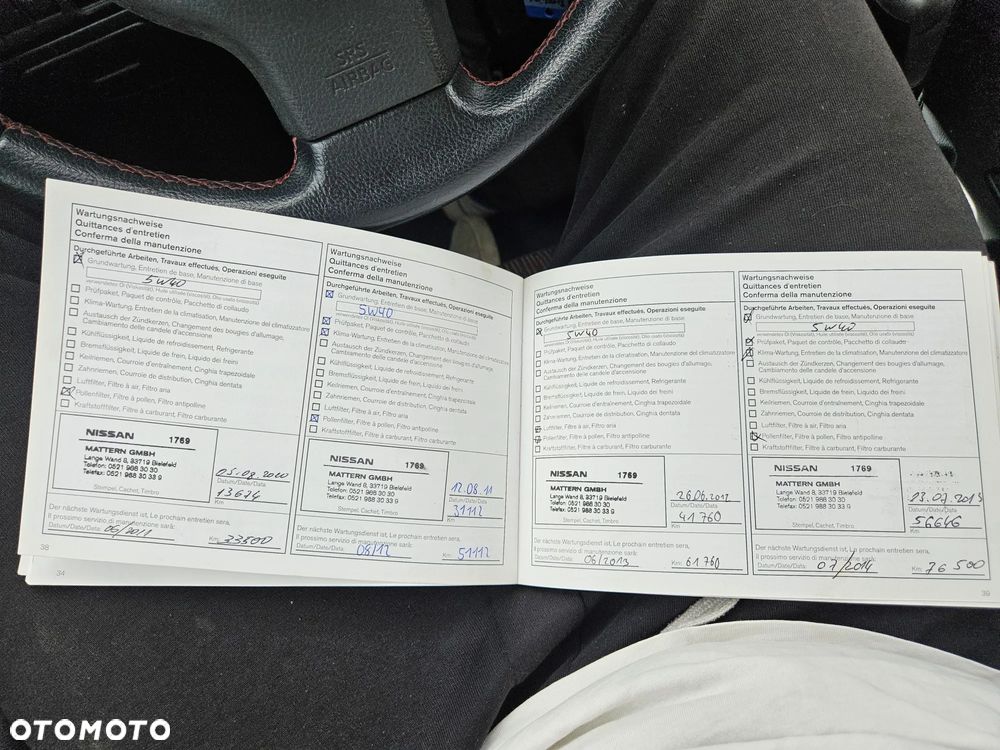 SRS
AIRBAG
Wartungsnachweise
Quittances d'entretien
Conferma della manutenzione
Durchgeführte Arbeiten, Travaux effectués, Operazioni eseguite
Grundwartung, Entretien de base, Manutenzione di base
5W40
verwendetes Öl (Viskosität), Huile utilisée (viscosité), Olio usato (viscosità)
Prüfpaket, Paquet de contrôle, Pacchetto di collaudo
Klima-Wartung, Entretien de la climatisation, Manutenzione del climatizzatore
Austausch der Zündkerzen, Changement des bougies d'allumage,
Cambiamento delle candele d'accensione
Kühlflüssigkeit, Liquide de refroidissement, Refrigerante
Bremsflüssigkeit, Liquide de frein, Liquido dei freini
Keilriemen, Courroie d'entraînement, Cinghia trapezoidale
Zahnriemen, Courroie de distribution, Cinghia dentata
Luftfilter, Filtre à air, Filtro aria
Pollenfilter, Filtre à pollen, Filtro antipolline
Kraftstofffilter, Filtre à carburant, Filtro carburante
NISSAN 1769
MATTERN GMBH
Lange Wand 8, 33719 Bielefeld
Telefon: 0521 988 30 30
Telefax: 0521 988 30 33 9
Stempel, Cachet, Timbro
05.08.2010
Datum/Date/Data
13674
Km
Der nächste Wartungsdienst ist, Le prochain entretien sera,
Il prossimo servizio di manutenzione sarà:
Datum/Date/Data: 06/2011 Km: 33500
38
34
Wartungsnachweise
Quittances d'entretien
Conferma della manutenzione
Durchgeführte Arbeiten, Travaux effectués, Operazioni eseguite
Grundwartung, Entretien de base, Manutenzione di base
5W40
verwendetes Öl (Viskosität), Huile utilisée (viscosité), Olio usato (viscosità)
Prüfpaket, Paquet de contrôle, Pacchetto di collaudo
Klima-Wartung, Entretien de la climatisation, Manutenzione del climatizzatore
Austausch der Zündkerzen, Changement des bougies d'allumage,
Cambiamento delle candele d'accensione
Kühlflüssigkeit, Liquide de refroidissement, Refrigerante
Bremsflüssigkeit, Liquide de frein, Liquido dei freini
Keilriemen, Courroie d'entraînement, Cinghia trapezoidale
Zahnriemen, Courroie de distribution, Cinghia dentata
Luftfilter, Filtre à air, Filtro aria
Pollenfilter, Filtre à pollen, Filtro antipolline
Kraftstofffilter, Filtre à carburant, Filtro carburante
NISSAN 1769
MATTERN GMBH
Lange Wand 8, 33719 Bielefeld
Telefon: 0521 988 30 30
Telefax: 0521 988 30 33 9
Stempel, Cachet, Timbro
12.08.11
Datum/Date/Data
31112
Km
Der nächste Wartungsdienst ist, Le prochain entretien sera,
Il prossimo servizio di manutenzione sarà:
Datum/Date/Data: 08/12 Km: 51112
Wartungsnachweise
Quittances d'entretien
Conferma della manutenzione
Durchgeführte Arbeiten, Travaux effectués, Operazioni eseguite
Grundwartung, Entretien de base, Manutenzione di base
5W40
verwendetes Öl (Viskosität), Huile utilisée (viscosité), Olio usato (viscosità)
Prüfpaket, Paquet de contrôle, Pacchetto di collaudo
Klima-Wartung, Entretien de la climatisation, Manutenzione del climatizzatore
Austausch der Zündkerzen, Changement des bougies d'allumage,
Cambiamento delle candele d'accensione
Kühlflüssigkeit, Liquide de refroidissement, Refrigerante
Bremsflüssigkeit, Liquide de frein, Liquido dei freini
Keilriemen, Courroie d'entraînement, Cinghia trapezoidale
Zahnriemen, Courroie de distribution, Cinghia dentata
Luftfilter, Filtre à air, Filtro aria
Pollenfilter, Filtre à pollen, Filtro antipolline
Kraftstofffilter, Filtre à carburant, Filtro carburante
NISSAN 1769
MATTERN GMBH
Lange Wand 8, 33719 Bielefeld
Telefon: 0521 988 30 30
Telefax: 0521 988 30 33 9
Stempel, Cachet, Timbro
26.06.2012
Datum/Date/Data
41760
Km
Der nächste Wartungsdienst ist, Le prochain entretien sera,
Il prossimo servizio di manutenzione sarà:
Datum/Date/Data: 06/2013 Km: 61760
Wartungsnachweise
Quittances d'entretien
Conferma della manutenzione
Durchgeführte Arbeiten, Travaux effectués, Operazioni eseguite
Grundwartung, Entretien de base, Manutenzione di base
5W40
verwendetes Öl (Viskosität), Huile utilisée (viscosité), Olio usato (viscosità)
Prüfpaket, Paquet de contrôle, Pacchetto di collaudo
Klima-Wartung, Entretien de la climatisation, Manutenzione del climatizzatore
Austausch der Zündkerzen, Changement des bougies d'allumage,
Cambiamento delle candele d'accensione
Kühlflüssigkeit, Liquide de refroidissement, Refrigerante
Bremsflüssigkeit, Liquide de frein, Liquido dei freini
Keilriemen, Courroie d'entraînement, Cinghia trapezoidale
Zahnriemen, Courroie de distribution, Cinghia dentata
Luftfilter, Filtre à air, Filtro aria
Pollenfilter, Filtre à pollen, Filtro antipolline
Kraftstofffilter, Filtre à carburant, Filtro carburante
NISSAN 1769
MATTERN GMBH
Lange Wand 8, 33719 Bielefeld
Telefon: 0521 988 30 30
Telefax: 0521 988 30 33 9
Stempel, Cachet, Timbro
23.07.2013
Datum/Date/Data
56646
Km
Der nächste Wartungsdienst ist, Le prochain entretien sera,
Il prossimo servizio di manutenzione sarà:
Datum/Date/Data: 07/2014 Km: 76500
39
OTOMOTO